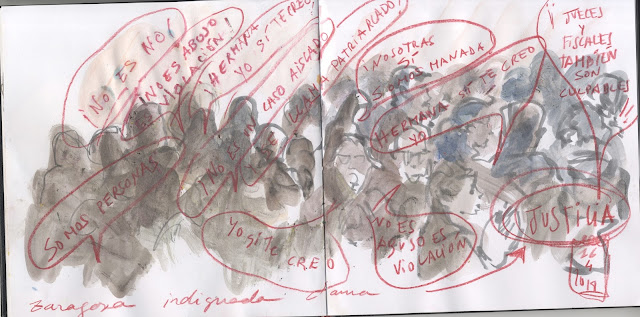 ¡NO ES NO!
¡NO ES ABUSO
VIOLACIÓN!
¡HERMANA
YO SÍ TE CREO!
¡NO ES UN CASO AISLADO
SE LLAMA PATRIARCADO!
¡NOSOTRAS
SÍ
SOMOS MANADA
HERMANA SÍ TE CREO
YO
¡¡JUECES
Y
FISCALES
TAMBIÉN
SON
CULPABLES!!
SOMOS PERSONAS
YO SÍ TE
CREO
NO ES
ABUSO ES
VIOLACIÓN
JUSTICIA
26
4
Zaragoza indignada